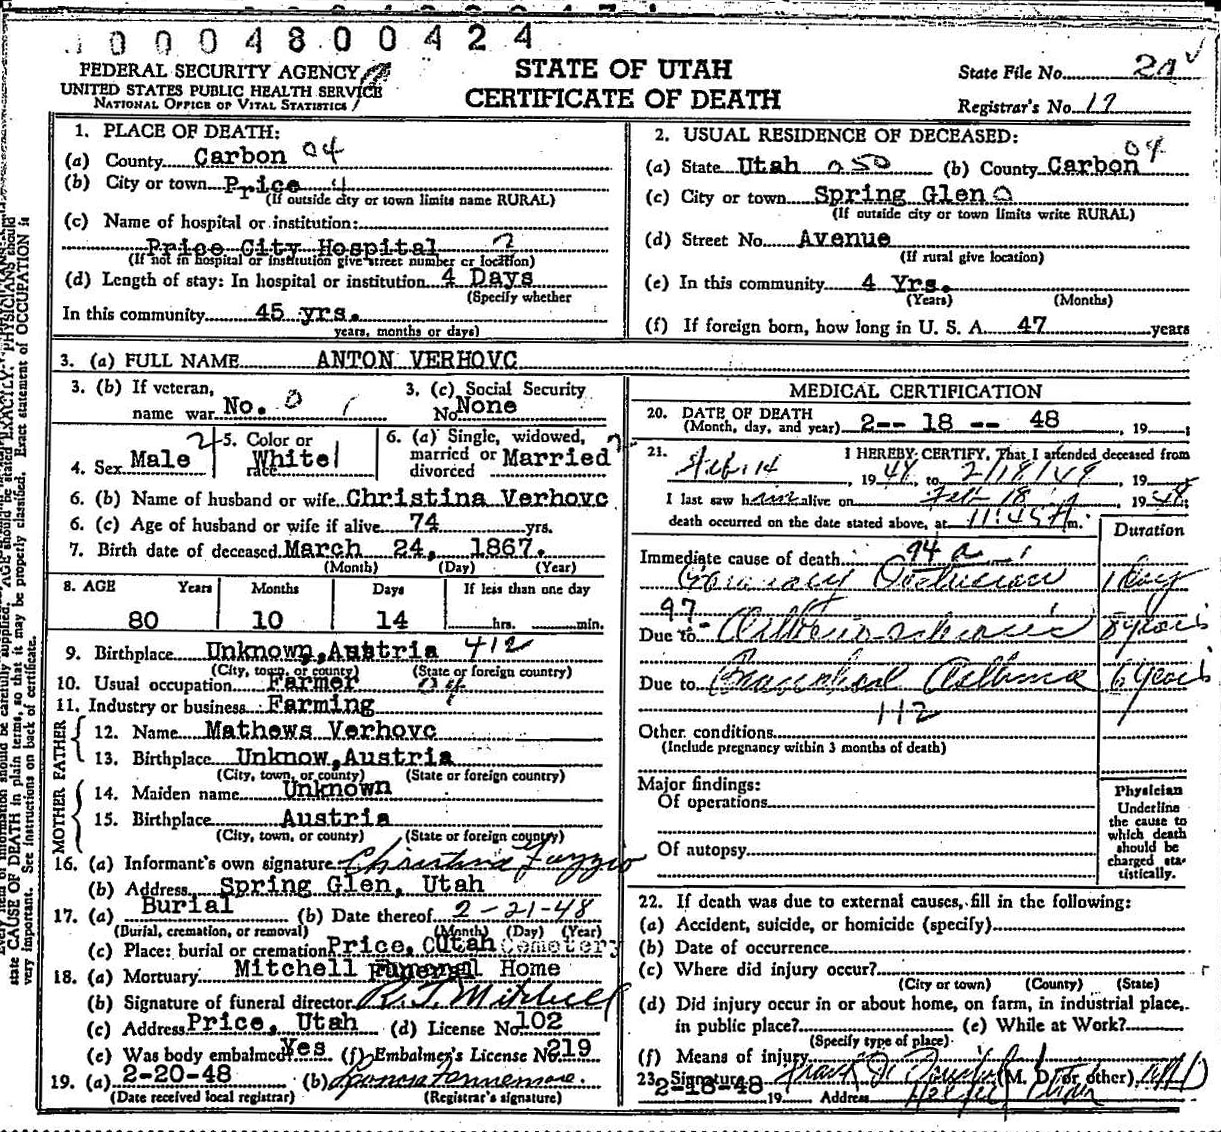 0 0 0 4 8 0 0 4 2 4
FEDERAL SECURITY AGENCY
UNITED STATES PUBLIC HEALTH SERVICE
NATIONAL OFFICE OF VITAL STATISTICS
STATE OF UTAH
CERTIFICATE OF DEATH
State File No.
Registrar's No. 17
1. PLACE OF DEATH:
(a) County Carbon 04
(b) City or town Price 4
(If outside city or town limits name RURAL)
(c) Name of hospital or institution:
Price City Hospital 2
(If not in hospital or institution give street number or location)
(d) Length of stay: In hospital or institution 4 Days
(Specify whether
In this community 45 yrs.
years, months or days)
2. USUAL RESIDENCE OF DECEASED:
(a) State Utah 050 (b) County Carbon 04
(c) City or town Spring Glen 0
(If outside city or town limits write RURAL)
(d) Street No. Avenue
(If rural give location)
(e) In this community 4 Yrs.
(Years) (Months)
(f) If foreign born, how long in U. S. A. 47 years
3. (a) FULL NAME ANTON VERHOVC
3. (b) If veteran, name war No. 0
3. (c) Social Security No. None
4. Sex Male 2
5. Color or race White
6. (a) Single, widowed, married or divorced Married
6. (b) Name of husband or wife Christina Verhovc
6. (c) Age of husband or wife if alive 74 yrs.
7. Birth date of deceased March 24, 1867.
(Month) (Day) (Year)
8. AGE Years Months Days If less than one day
80 10 14 hrs. min.
9. Birthplace Unknown, Austria 412
(City, town, or county) (State or foreign country)
10. Usual occupation Farmer
11. Industry or business Farming
FATHER
12. Name Mathews Verhovc
13. Birthplace Unknow, Austria
(City, town, or county) (State or foreign country)
MOTHER
14. Maiden name Unknown
15. Birthplace Austria
(City, town, or county) (State or foreign country)
16. (a) Informant's own signature Christina Fazzio
(b) Address Spring Glen, Utah
17. (a) Burial (b) Date thereof 2-21-48
(Burial, cremation, or removal) (Month) (Day) (Year)
(c) Place: burial or cremation Price, CUtah Cemetery
18. (a) Mortuary Mitchell Funeral Home
(b) Signature of funeral director R. T. Mitchell
(c) Address Price, Utah (d) License No. 102
(e) Was body embalmed Yes (f) Embalmer's License No. 219
19. (a) 2-20-48 (b)
(Date received local registrar) (Registrar's signature)
MEDICAL CERTIFICATION
20. DATE OF DEATH
(Month, day, and year) 2-- 18 -- 48 , 19
21. I HEREBY CERTIFY, That I attended deceased from
Feb. 14, 1948, to 2/18/48, 19
I last saw him alive on Feb 18, 1948;
death occurred on the date stated above, at 11:45 A m.
Duration
Immediate cause of death 94 a
Coronary Occlusion 1 Day
97
Due to Arteriosclerosis 8 years
Due to Bronchial Asthma 6 years
112
Other conditions
(Include pregnancy within 3 months of death)
Major findings:
Of operations
Of autopsy
Physician
Underline
the cause to
which death
should be
charged sta-
tistically.
22. If death was due to external causes, fill in the following:
(a) Accident, suicide, or homicide (specify)
(b) Date of occurrence
(c) Where did injury occur?
(City or town) (County) (State)
(d) Did injury occur in or about home, on farm, in industrial place,
in public place? (e) While at Work?
(Specify type of place)
(f) Means of injury
23. Signature (M. D. or other) MD
2-18-48 19 Address Helper, Utah